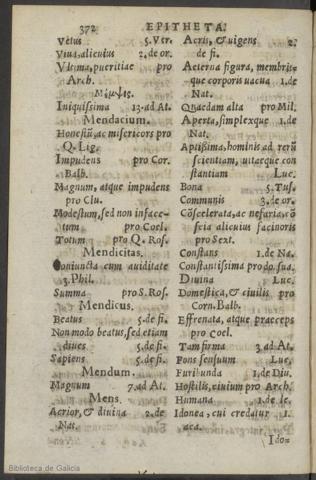 372 EPITHETA.
Vetus 5. Ver.
Viua, alicuius 2. de or.
Vltima, pueritiae pro
Arch.
Μέμψις.
Iniquissima 13. ad At.
Mendacium.
Honestū, ac misericors pro
Q. Lig.
Impudens pro Cor.
Balb.
Magnum, atque impudens
pro Clu.
Modestum, sed non inface-
tum pro Coel.
Totum pro Q. Ros.
Mendicitas.
Coniuncta cum auiditate
3. Phil.
Summa pro S. Ros.
Mendicus.
Beatus 5. de fi.
Non modo beatus, sed etiam
diues 5. de fi.
Sapiens 5. de fi.
Mendum.
Magnum 7. ad At.
Mens.
Acrior, & diuina 2. de
Nat.
Acris, & uigens 2.
de fi.
Aeterna figura, membris-
que corporis uacua 1. de
Nat.
Quaedam alta pro Mil.
Aperta, simplexque 1. de
Nat.
Aptissima, hominis ad rerū
scientiam, uitaeque con
stantiam Luc.
Bona 5. Tus.
Communis 3. de or.
Cōscelerata, ac nefaria, cō
scia alicuius facinoris
pro Sext.
Constans 1. de Na.
Constantissima pro do. sua.
Diuina Luc.
Domestica, & ciuilis pro
Corn. Balb.
Effrenata, atque praeceps
pro Coel.
Tam firma 3. ad At.
Fons sensuum Luc.
Furibunda 1. de Diu.
Hostilis, ciuium pro Arch.
Humana 1. de le.
Idonea, cui credatur 1.
aca.
Ido=
Biblioteca de Galicia